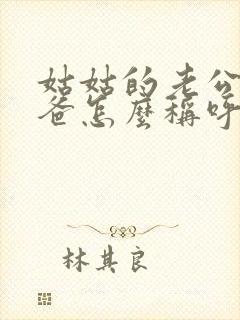 姑姑的老公
爸怎麼稱呼
林其良